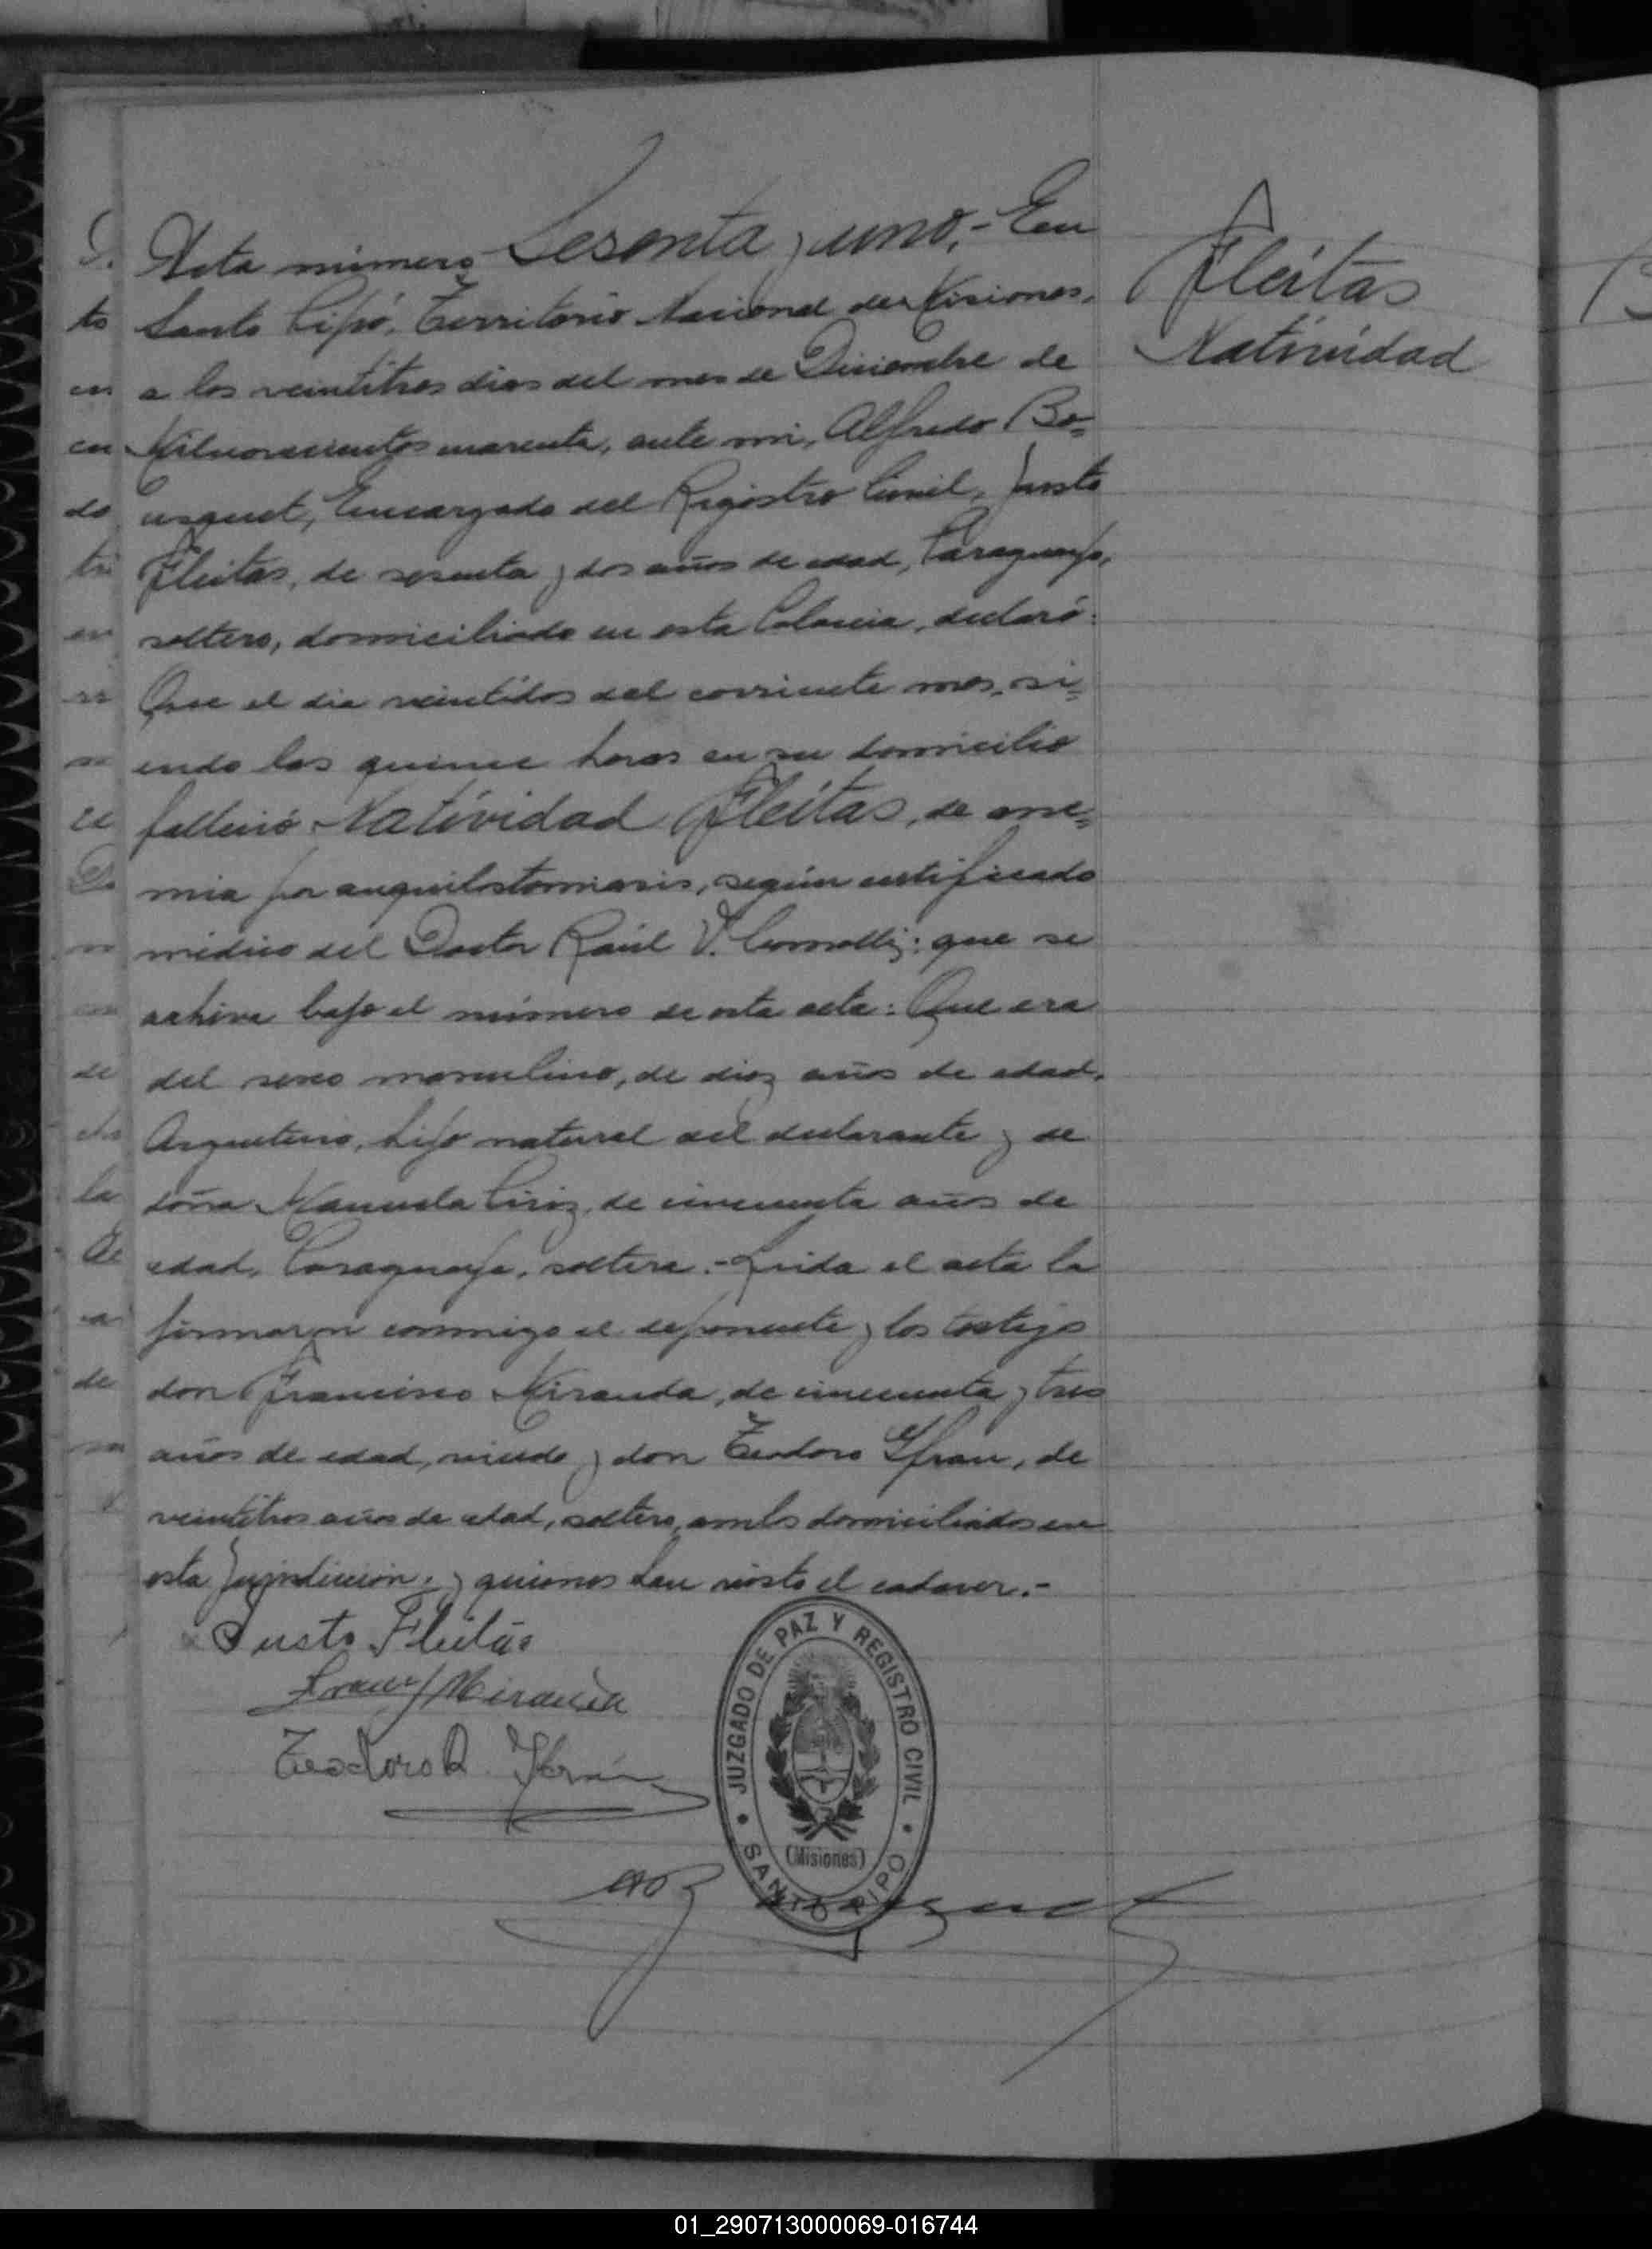 Acta número Sesenta y uno,- En
Santo Pipó, Territorio Nacional de Misiones,
a los veintitres dias del mes de Diciembre de
Milnovecientos cuarenta, ante mi, Alfredo Bo=
usquet, Encargado del Registro Civil, Justo
Fleitas, de sesenta y dos años de edad, Paraguayo,
soltero, domiciliado en esta Colonia, declaró:
Que el dia veintidos del corriente mes, si=
endo las quince horas en su domicilio
falleció Natividad Fleitas, de ane=
mia por anquilostomiasis, según certificado
médico del Doctor Raúl V. que se
archiva bajo el número de esta acta: Que era
del sexo masculino, de diez años de edad,
Argentino, hijo natural del declarante y de
doña Manuela de cincuenta años de
edad, Paraguaya, soltera.- Leida el acta la
firmaron conmigo el deponente y los testigos
don Francisco Miranda, de cincuenta y tres
años de edad, viudo y don Teodoro Yfran, de
veintitres años de edad, soltero, ambos domiciliados en
esta Jurisdiccion; y quienes han visto el cadaver.-
Justo Fleitas
Franco Miranda
Teodoro R. Yfrán
Fleitas
Natividad
JUZGADO DE PAZ Y REGISTRO CIVIL
(Misiones)
SANTO PIPO
01_290713000069-016744